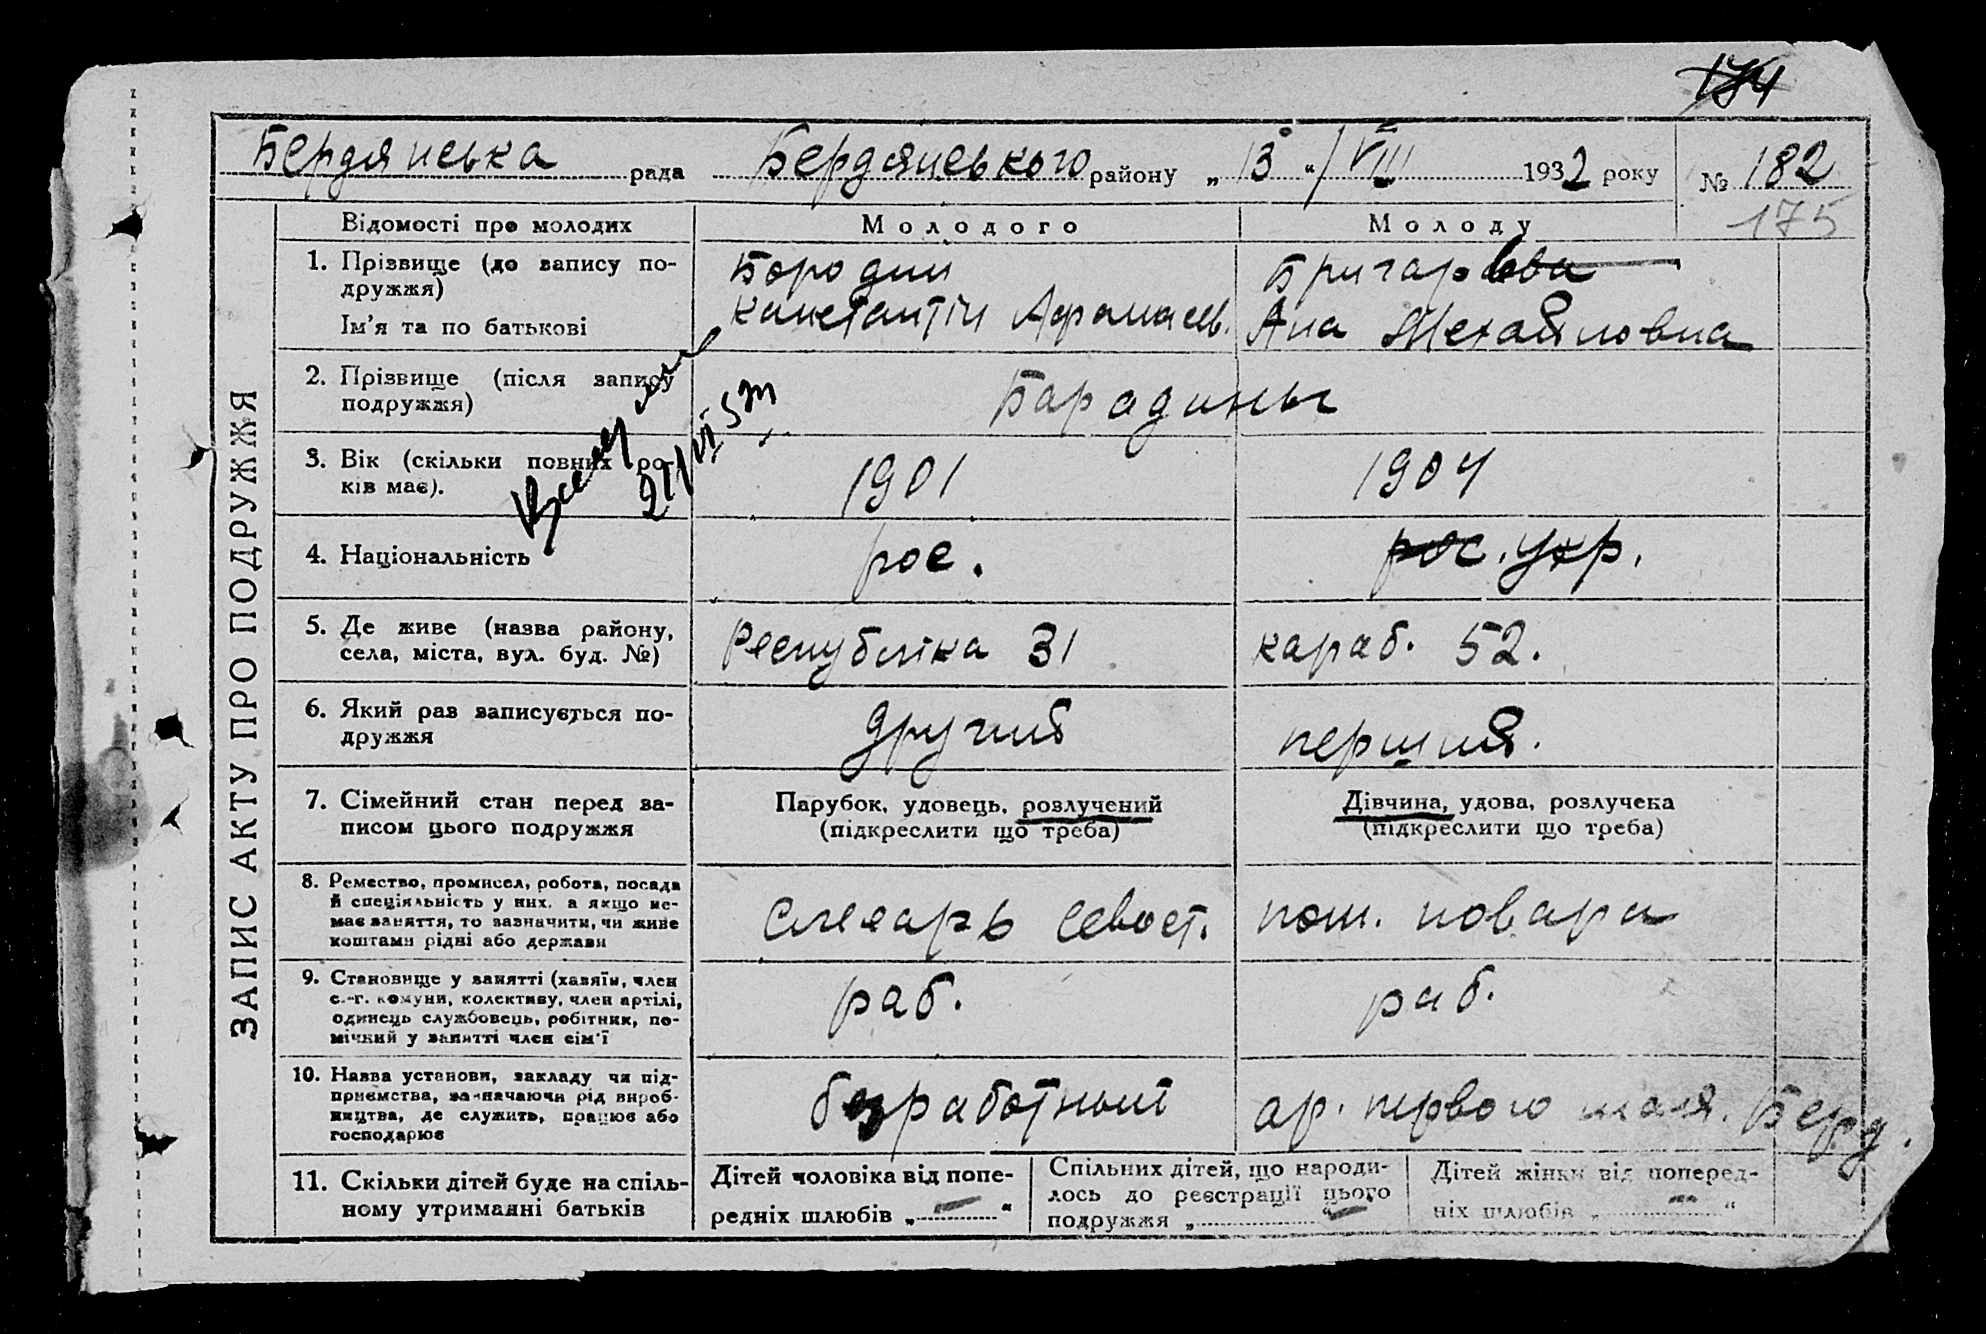 Бердянська рада Бердянського району „ 13 “ / VIII 1932 року № 182
175
ЗАПИС АКТУ ПРО ПОДРУЖЖЯ
Відомості про молодих
Молодого
Молоду
1. Прізвище (до запису по-
дружжя)
Ім’я та по батькові
Бородин
Константін Афанасев.
Ана Михайловна
2. Прізвище (після запису
подружжя)
Барадины
3. Вік (скільки повних ро-
ків має).
1901
1904
4. Національність
рос.
рос. укр.
5. Де живе (назва району,
села, міста, вул. буд. №)
Республіка 31
караб. 52.
6. Який раз записується по-
дружжя
другий
перший.
7. Сімейний стан перед за-
писом цього подружжя
Парубок, удовець, розлучений
(підкреслити що треба)
Дівчина, удова, розлучена
(підкреслити що треба)
8. Ремество, промисел, робота, посада
й спеціяльність у них, а якщо не-
має заняття, то зазначити, чи живе
коштами рідні або держави
Слесарь Севост.
пом. повара
9. Становище у занятті (хазяїн, член
с.-г. комуни, колективу, член артілі,
одинець службовець, робітник, по-
мічний у занятті член сім’ї
раб.
раб.
10. Назва установи, закладу чи під-
приємства, зазначаючи рід вироб-
ництва, де служить, працює або
господарює
безработный
ар. первого мая. Берд.
11. Скільки дітей буде на спіль-
ному утриманні батьків
Дітей чоловіка від попе-
редніх шлюбів „ — “
Спільних дітей, що народи-
лось до реєстрації цього
подружжя „ — “
Дітей жінки від поперед-
ніх шлюбів „ — “